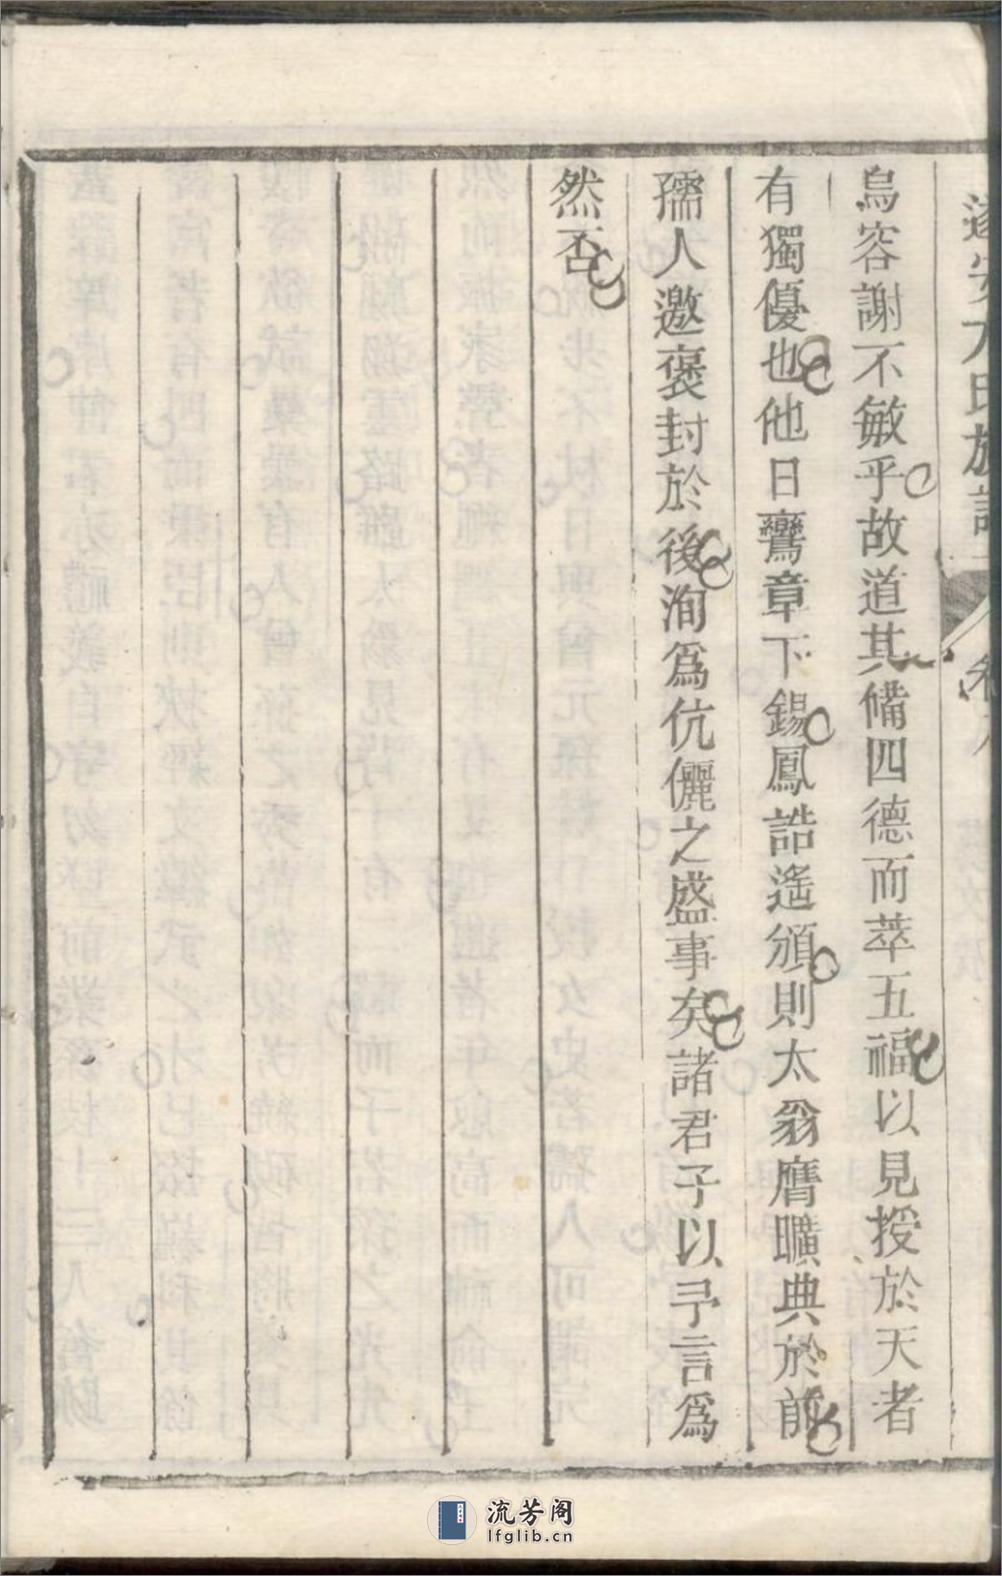 遂安方氏族譜 卷八
烏容謝不敏乎故道其備四德而萃五福以見授於天者
有獨優也他日鸞章下錫鳳誥遙頒則太翁膺曠典於前
孺人邀褒封於後洵爲伉儷之盛事矣諸君子以予言爲
然否
流芳阁
lfglib.cn